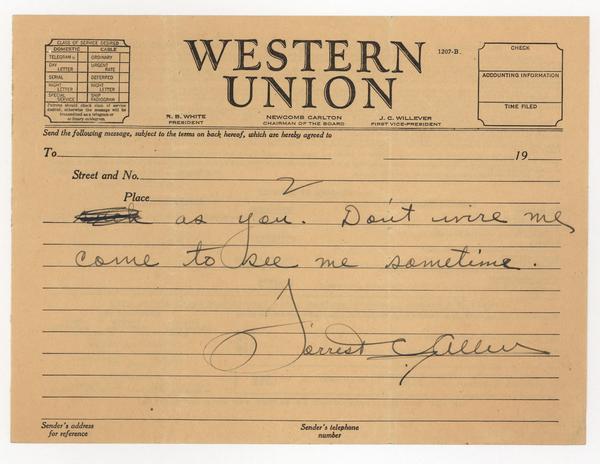 CLASS OF SERVICE DESIRED
DOMESTIC CABLE
TELEGRAM ORDINARY
DAY LETTER URGENT RATE
SERIAL DEFERRED
NIGHT LETTER NIGHT LETTER
SPECIAL SERVICE SHIP RADIOGRAM
Patrons should check class of service
desired; otherwise the message will be
transmitted as a telegram or
ordinary cablegram.
WESTERN
UNION
1207-B.
CHECK
ACCOUNTING INFORMATION
TIME FILED
R. B. WHITE
PRESIDENT
NEWCOMB CARLTON
CHAIRMAN OF THE BOARD
J. C. WILLEVER
FIRST VICE-PRESIDENT
Send the following message, subject to the terms on back hereof, which are hereby agreed to
To 19
Street and No.
2
Place
as you. Don't wire me
come to see me sometime.
Forrest C. Allen
Sender's address
for reference
Sender's telephone
number